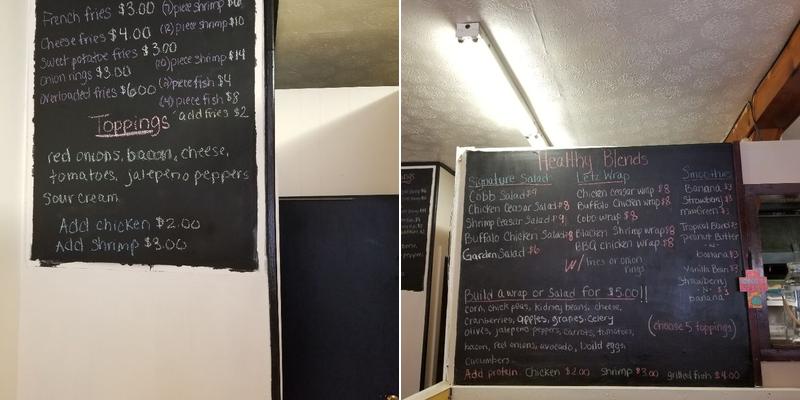 French fries $3.00
Cheese fries $4.00
Sweet potatoe fries $3.00
onion rings $3.00
Overloaded fries $6.00
(7) piece shrimp
piece shrimp $10
piece shrimp $14
piece fish $4
(4) piece fish $8
add fries $2
Toppings
red onions, bacon, cheese,
tomatoes, jalepeno peppers
sour cream
Add chicken $2.00
Add shrimp $3.00
Healthy Blends
Signature Salad
Cobb Salad $9
Chicken Ceasar Salad $8
Shrimp Ceasar Salad $9
Buffalo Chicken Salad $8
Garden Salad $6
Letz Wrap
Chicken ceasar wrap $8
Buffalo Chicken wrap $8
Cobb wrap $8
Shrimp wrap $8
BBQ chicken wrap $8
w/ fries or onion
rings
Smoothies
Banana $3
Strawberry
Tropical Blend
Peanut Butter
-N-
banana
Vanilla Bean $3
Strawberry
-N- $3
banana
Build a wrap or Salad for $5.00!!
corn, chick peas, kidney beans, cheese,
cranberries, apples, grapes, celery
olives, jalepeno peppers, carrots, tomatoes,
bacon, red onions, avocado, boild eggs,
cucumbers
(choose 5 toppings)
Add protein Chicken $2.00 Shrimp $3.00 grilled fish $4.00